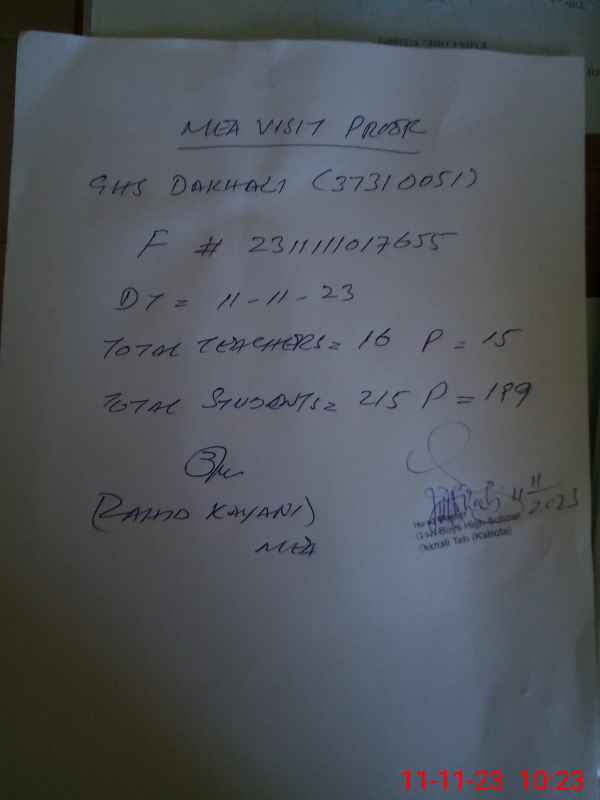 MEA VISIT PROOF
GHS DAKHALI (37310051)
F # 2311111017655
DT = 11-11-23
TOTAL TEACHERS = 16 P = 15
TOTAL STUDENTS = 215 P = 199
(RAMD KAYANI)
MEA
11/11/2023
Govt Boys High School
Dakhali Teh (Kallar
11-11-23 10:23